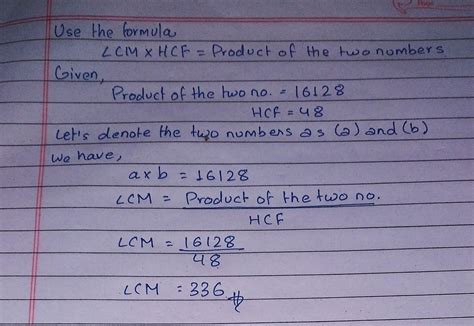 Use the formula
LCM × HCF = Product of the two numbers
Given,
Product of the two no. = 16128
HCF = 48
Let's denote the two numbers as (a) and (b)
We have,
a × b = 16128
LCM = Product of the two no.
HCF
LCM = 16128
48
LCM = 336